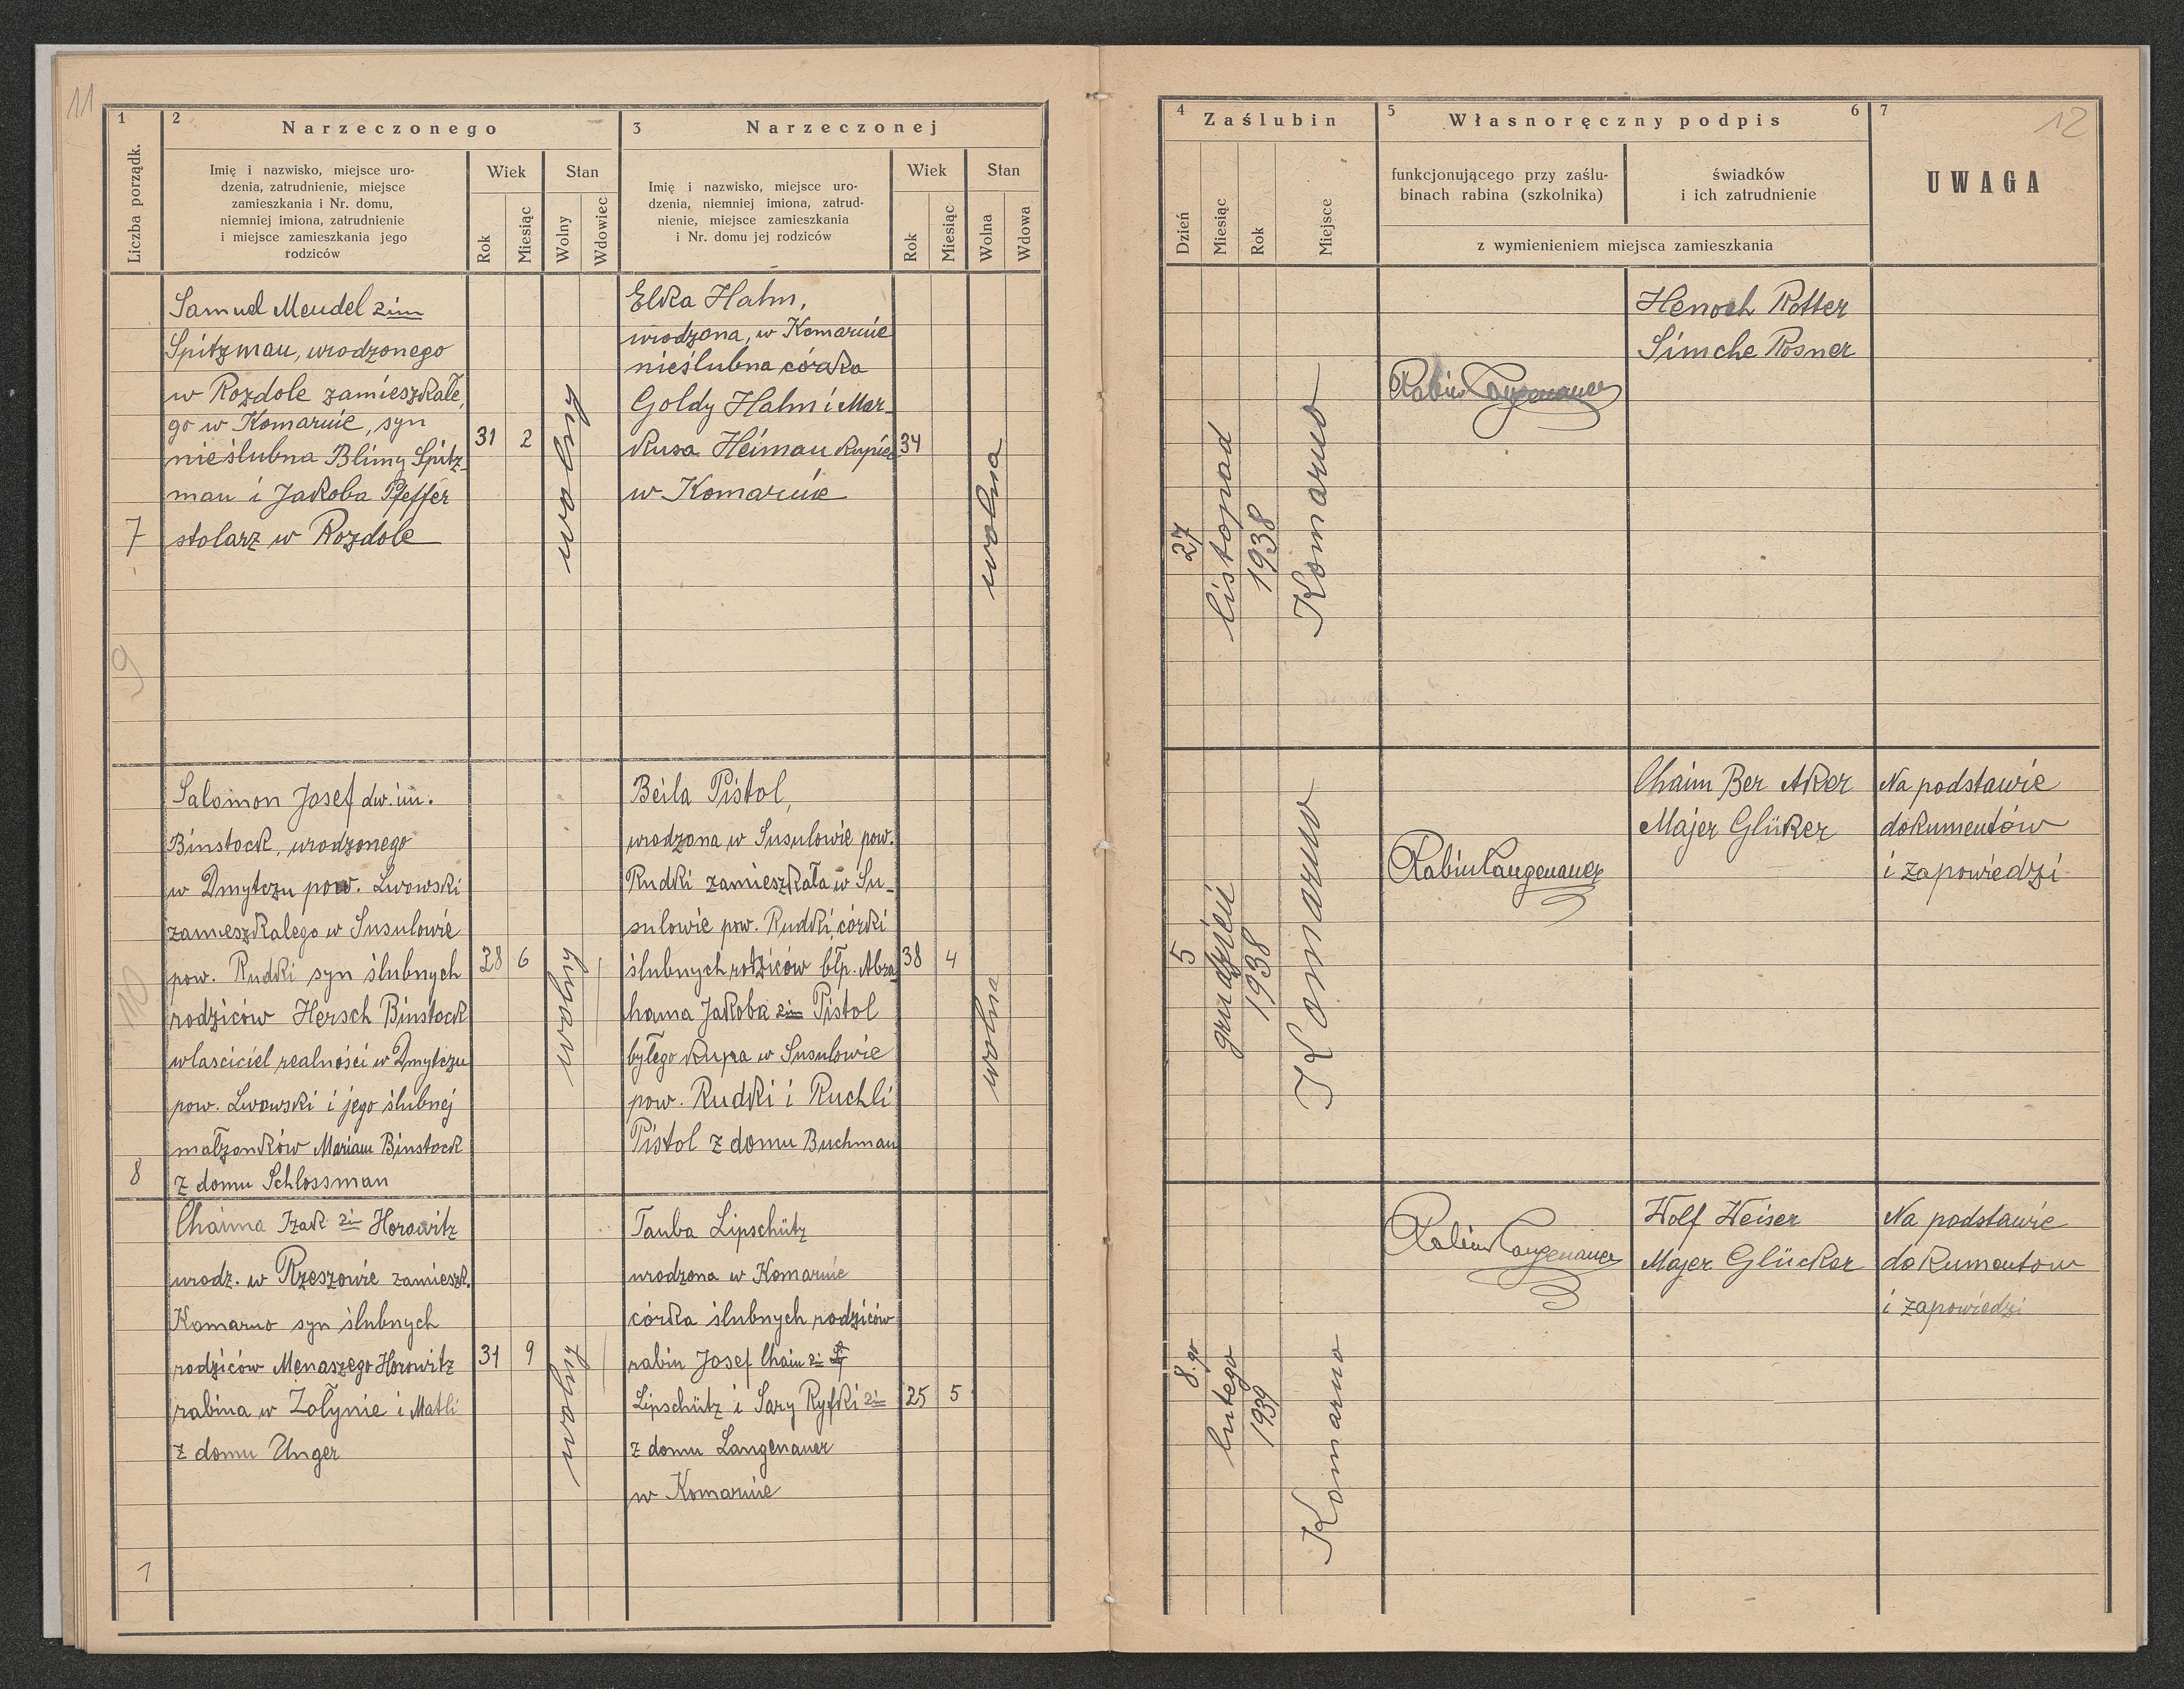 11
1
2
Narzeczonego
3
Narzeczonej
Liczba porządk.
Imię i nazwisko, miejsce uro-
dzenia, zatrudnienie, miejsce
zamieszkania i Nr. domu,
niemniej imiona, zatrudnienie
i miejsce zamieszkania jego
rodziców
Wiek
Stan
Rok
Miesiąc
Wolny
Wdowiec
Imię i nazwisko, miejsce uro-
dzenia, niemniej imiona, zatrud-
nienie, miejsce zamieszkania
i Nr. domu jej rodziców
Wiek
Stan
Rok
Miesiąc
Wolna
Wdowa
7
9
Samuel Mendel 2im
Spitzman, urodzonego
w Rozdole zamieszkałe,
go w Komarnie, syn
nieślubna Blimy Spitz-
man i Jakoba Pfeffer
stolarz w Rozdole
31
2
wolny
Elka Hahn,
urodzona, w Komarnie
nieślubna córka
Goldy Hahn i Mar-
kusa Heiman kupiec
w Komarnie
34
wolna
10
8
Salomon Josef dw. im.
Binstock, urodzonego
w Dmytrzu pow. Lwowski
zamieszkalego w Susulowie
pow. Rudki syn ślubnych
rodziców Hersch Binstock
wlasciciel realności w Dmytrzu
pow. Lwowski i jego ślubnej
małżonków Mariam Binstock
z domu Schlossman
28
6
wolny
Beila Pistol,
urodzona w Susulowie pow.
Rudki zamieszkała w Su-
sulowie pow. Rudki, córki
ślubnych rodziców błp. Abra
hama Jakoba 2im Pistol
byłego kupa w Susulowie
pow. Rudki i Ruchli
Pistol z domu Buchman
38
4
wolna
1
Chaima Izak 2im Horowitz
urodz. w Rzeszowie zamieszk.
Komarno syn ślubnych
rodziców Menaszego Horowitz
rabina w Żołynie i Matli
z domu Unger
31
9
wolny
Tauba Lipschütz
urodzona w Komarnie
córka ślubnych rodziców
rabin Josef Chaim 2im
Lipschütz i Sary Ryfki 2im
z domu Langenauer
w Komarnie
25
5
12
4
Zaślubin
5
Własnoręczny podpis
6
7
Dzień
Miesiąc
Rok
Miejsce
funkcjonującego przy zaślu-
binach rabina (szkolnika)
świadków
i ich zatrudnienie
z wymienieniem miejsca zamieszkania
UWAGA
27
listopad
1938
Komarno
Rabin Langenauer
Henoch Rotter
Simche Rosner
5
grudzień
1938
Komarno
Rabin Langenauer
Chaim Ber Aker
Majer Glüker
Na podstawie
dokumentów
i zapowiedzi
8.go
lutego
1939
Komarno
Rabin Langenauer
Wolf Weiser
Majer Glücker
Na podstawie
dokumentow
i zapowiedzi